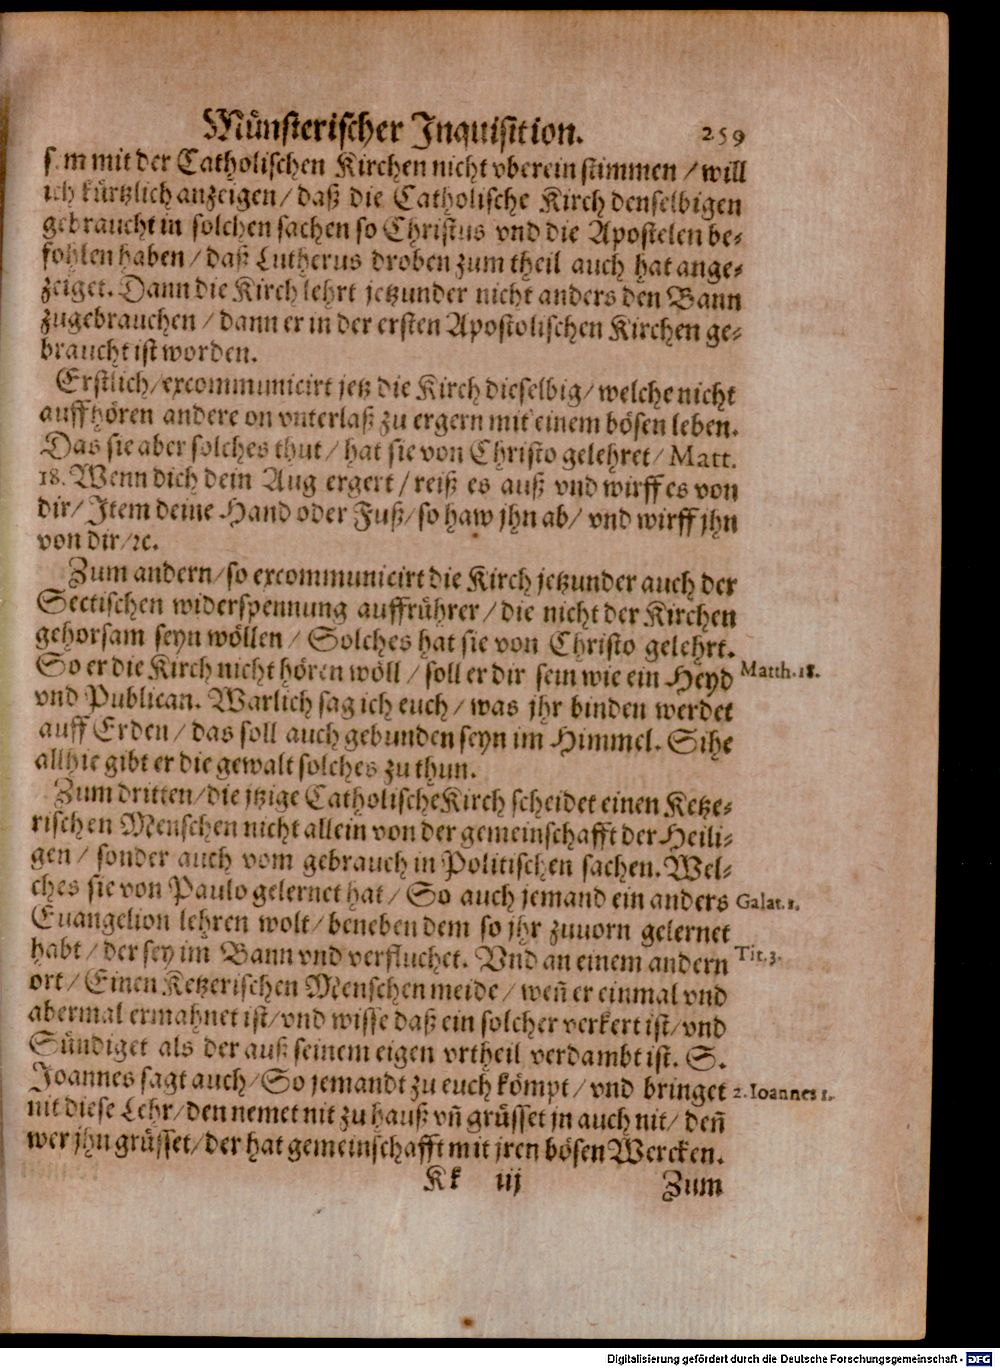 Münsterischer Inquisition. 259
mit der Catholischen Kirchen nicht vberein stimmen / will
ich kürtzlich anzeigen / daß die Catholische Kirch denselbigen
gebraucht in solchen sachen so Christus vnd die Apostelen be-
fohlen haben / daß Lutherus droben zum theil auch hat ange-
zeiget. Dann die Kirch lehrt jetzunder nicht anders den Bann
zugebrauchen / dann er in der ersten Apostolischen Kirchen ge-
braucht ist worden.
Erstlich / excommunicirt jetz die Kirch dieselbig / welche nicht
auffhören andere on vnterlaß zu ergern mit einem bösen leben.
Das sie aber solches thut / hat sie von Christo gelehret / Matt.
18. Wenn dich dein Aug ergert / reiß es auß vnd wirff es von
dir / Item deine Hand oder Fuß / so haw jhn ab / vnd wirff jhn
von dir / ꝛc.
Zum andern / so excommunicirt die Kirch jetzunder auch der
Sectischen widerspennung auffrührer / die nicht der Kirchen
gehorsam seyn wöllen / Solches hat sie von Christo gelehrt.
So er die Kirch nicht hören wöll / soll er dir sein wie ein Heyd Matth. 18.
vnd Publican. Warlich sag ich euch / was jhr binden werdet
auff Erden / das soll auch gebunden seyn im Himmel. Sihe
allhie gibt er die gewalt solches zu thun.
Zum dritten / die itzige Catholische Kirch scheidet einen Ketze-
rischen Menschen nicht allein von der gemeinschafft der Heili-
gen / sonder auch vom gebrauch in Politischen sachen. Wel-
ches sie von Paulo gelernet hat / So auch jemand ein anders Galat. 1.
Euangelion lehren wolt / beneben dem so jhr zuuorn gelernet
habt / der sey im Bann vnd verfluchet. Vnd an einem andern Tit. 3.
ort / Einen Ketzerischen Menschen meide / weñ er einmal vnd
abermal ermahnet ist / vnd wisse daß ein solcher verkert ist / vnd
Sündiget als der auß seinem eigen vrtheil verdambt ist. S.
Joannes sagt auch / So jemandt zu euch kömpt / vnd bringet 2. Ioannes 1.
nit diese Lehr / den nemet nit zu hauß vñ grüsset jn auch nit / deñ
wer jhn grüsset / der hat gemeinschafft mit jren bösen Wercken.
Kk iij Zum
Digitalisierung gefördert durch die Deutsche Forschungsgemeinschaft - DFG